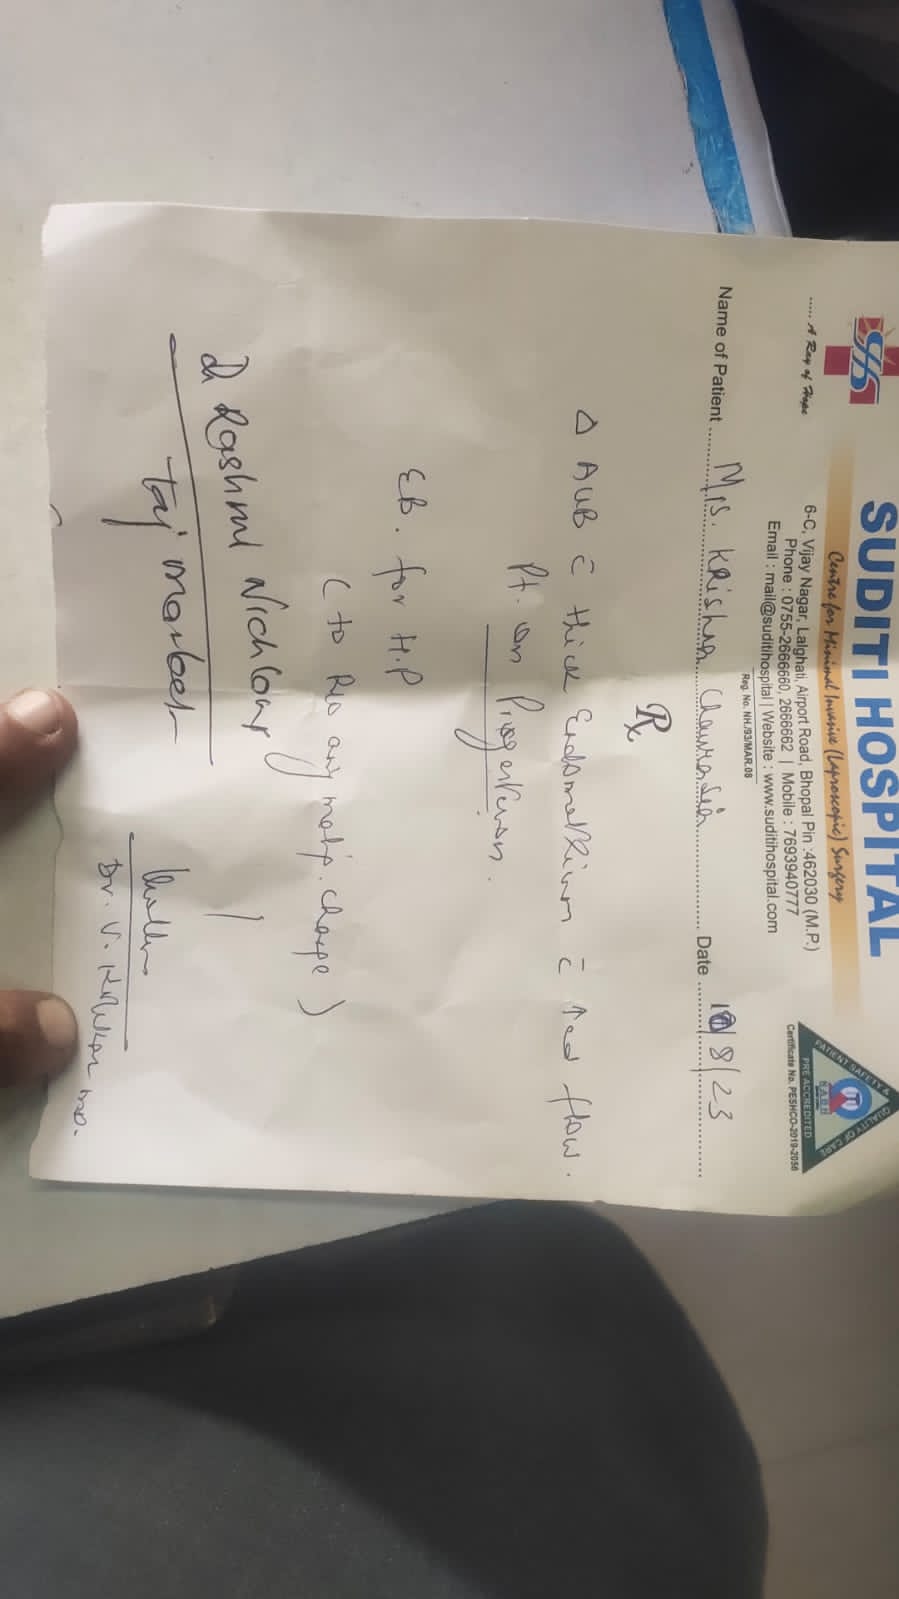 SUDITI HOSPITAL
Centre for Minimal Invasive (Laproscopic) Surgery
..... A Ray of Hope
6-C, Vijay Nagar, Lalghati, Airport Road, Bhopal Pin :462030 (M.P.)
Phone : 0755-2666660, 2666662 | Mobile : 7693940777
Email : mail@suditihospital | Website : www.suditihospital.com
Reg. No. NH./93/MAR.08
PATIENT SAFETY & QUALITY OF CARE
PRE ACCREDITED
NABH
Certificate No. PESHCO-2019-2056
Name of Patient Mrs. Krishna Chaurasia Date 10/8/23
Rx
Δ AUB c̄ thick Endometrium c̄ ↑ed flow.
Pt. on Progesteron.
EB. for H.P
( to R/o any
Dr Rashmi
Taj
Dr. V.